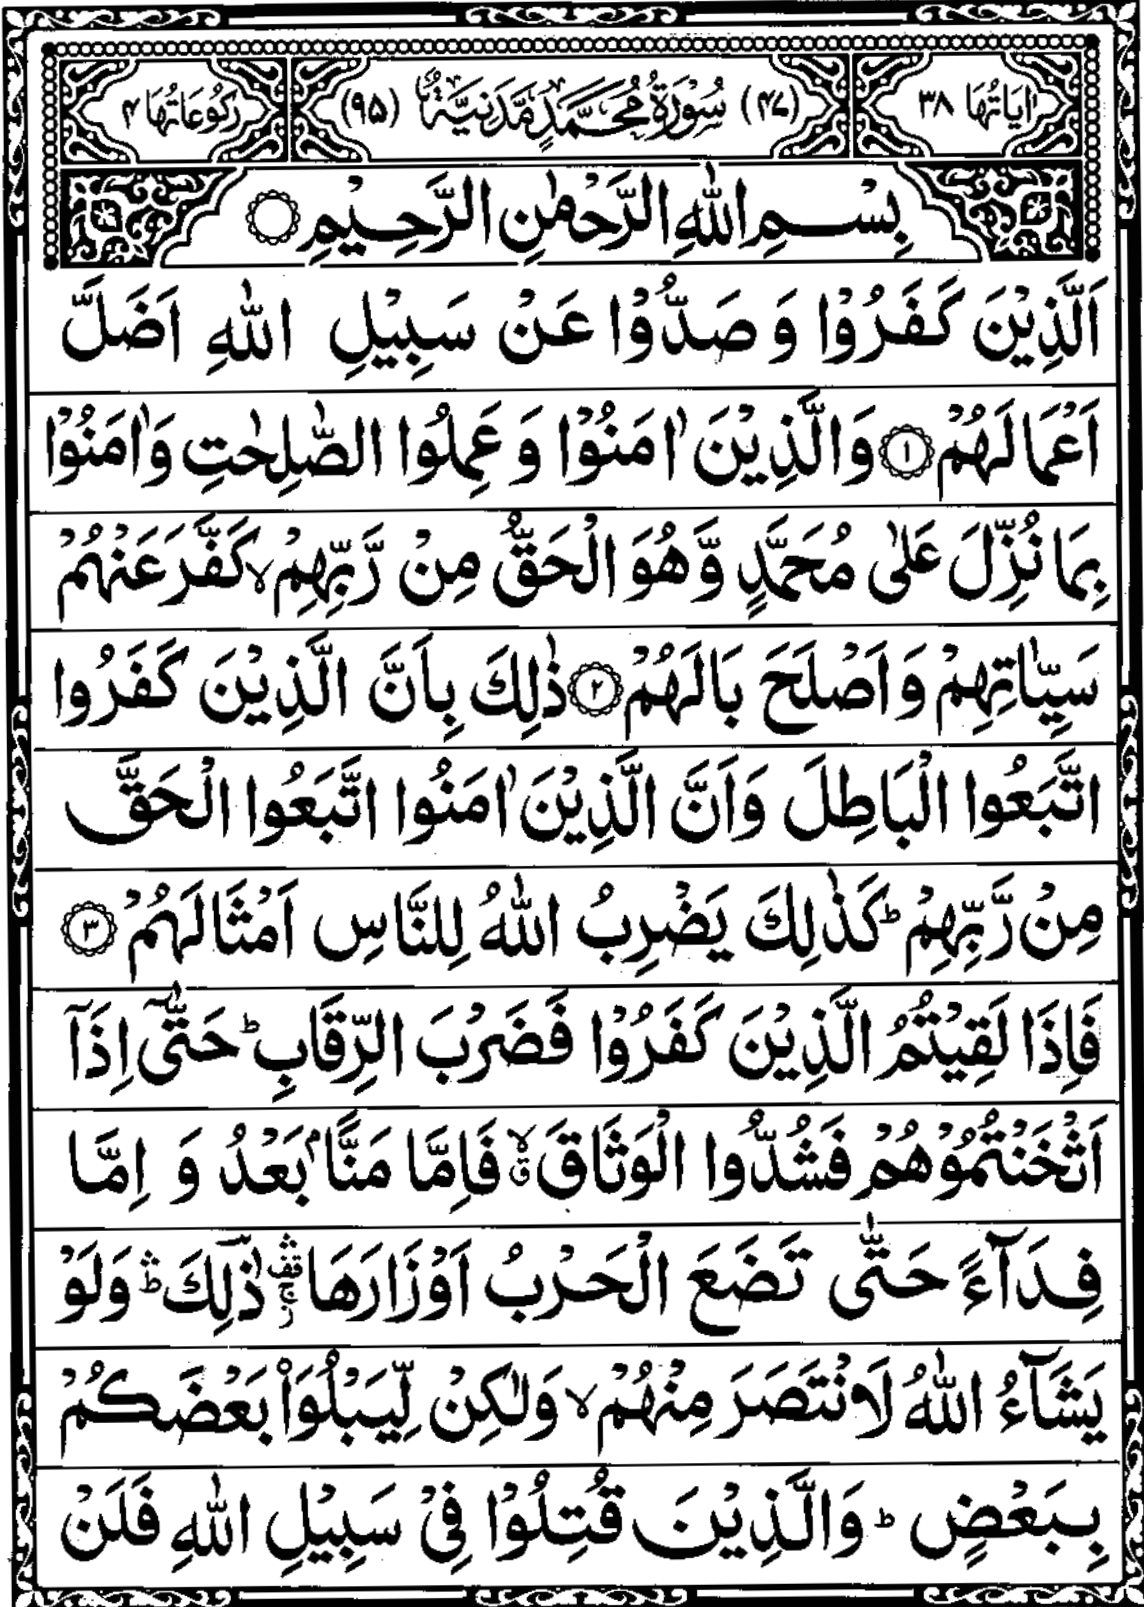 اٰيَاتُهَا ٣٨ (٤٧) سُوْرَةُ مُحَمَّدٍ مَّدَنِيَّةٌ (٩٥) رُكُوْعَاتُهَا ٤
بِسْمِ اللّٰهِ الرَّحْمٰنِ الرَّحِيْمِ
اَلَّذِيْنَ كَفَرُوْا وَ صَدُّوْا عَنْ سَبِيْلِ اللّٰهِ اَضَلَّ
اَعْمَالَهُمْ ۝١ وَالَّذِيْنَ اٰمَنُوْا وَ عَمِلُوا الصّٰلِحٰتِ وَاٰمَنُوْا
بِمَا نُزِّلَ عَلٰى مُحَمَّدٍ وَّهُوَ الْحَقُّ مِنْ رَّبِّهِمْ ۙ كَفَّرَ عَنْهُمْ
سَيِّاٰتِهِمْ وَاَصْلَحَ بَالَهُمْ ۝٢ ذٰلِكَ بِاَنَّ الَّذِيْنَ كَفَرُوا
اتَّبَعُوا الْبَاطِلَ وَاَنَّ الَّذِيْنَ اٰمَنُوا اتَّبَعُوا الْحَقَّ
مِنْ رَّبِّهِمْ ؕ كَذٰلِكَ يَضْرِبُ اللّٰهُ لِلنَّاسِ اَمْثَالَهُمْ ۝٣
فَاِذَا لَقِيْتُمُ الَّذِيْنَ كَفَرُوْا فَضَرْبَ الرِّقَابِ ؕ حَتّٰۤى اِذَاۤ
اَثْخَنْتُمُوْهُمْ فَشُدُّوا الْوَثَاقَ ۙۗ فَاِمَّا مَنًّۢا بَعْدُ وَ اِمَّا
فِدَآءً حَتّٰى تَضَعَ الْحَرْبُ اَوْزَارَهَا ۛ۫ۚ ذٰ ؔلِكَ ۛؕ وَلَوْ
يَشَآءُ اللّٰهُ لَانْتَصَرَ مِنْهُمْ ۙ وَلٰكِنْ لِّيَبْلُوَا۟ بَعْضَكُمْ
بِبَعْضٍ ؕ وَالَّذِيْنَ قُتِلُوْا فِيْ سَبِيْلِ اللّٰهِ فَلَنْ